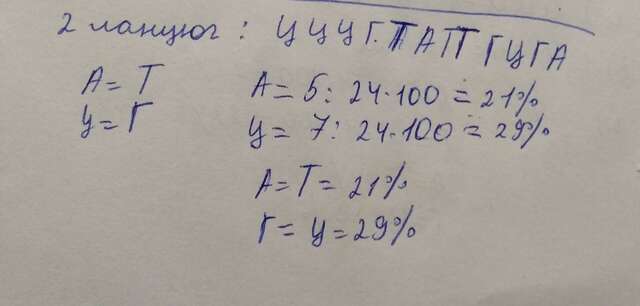 2 ланцюг: Ц Ц Ц Г Т А Т Г Ц Г А
А = Т
Ц = Г
А = 5 : 24 · 100 = 21%
Ц = 7 : 24 · 100 = 29%
А = Т = 21%
Г = Ц = 29%